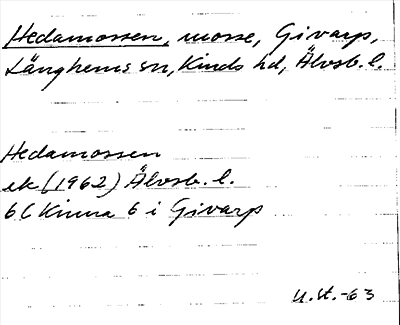 Hedamossen, mosse, Givarp,
Länghems sn, Kinds hd, Älvsb. l.
Hedamossen
ek (1962) Älvsb. l.
6C Kinna 6 i Givarp
U.St.-63